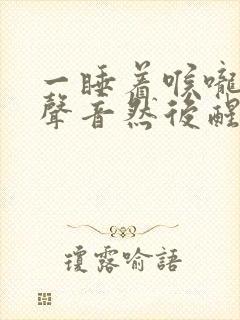 一睡着喉嚨
聲音然後醒
瓊露喻語